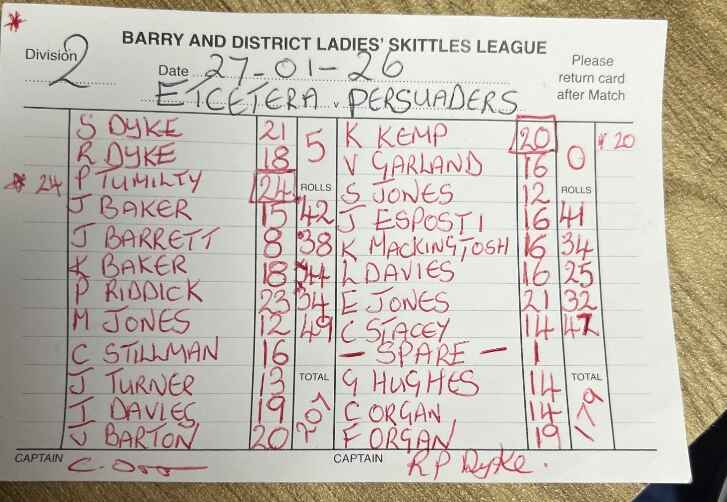 *
BARRY AND DISTRICT LADIES' SKITTLES LEAGUE
Division 2
Date 27-01-26
Please return card after Match
ETCETERA . PERSUADERS
S DYKE 21 5 K KEMP 20 * 20
R DYKE 18 V GARLAND 16 0
* 24 P TUMILTY 24 ROLLS S JONES 12 ROLLS
J BAKER 15 42 J ESPOSTI 16 41
J BARRETT 8 38 K MACKINGTOSH 16 34
K BAKER 18 44 L DAVIES 16 25
P RIDDICK 23 34 E JONES 21 32
M JONES 12 49 C STACEY 14 47
C STILLMAN 16 - SPARE - 1
J TURNER 13 TOTAL G HUGHES 14 TOTAL
I DAVIES 19 207 C ORGAN 14 179
J BARTON 20 F ORGAN 19
CAPTAIN CAPTAIN RP Dyke.